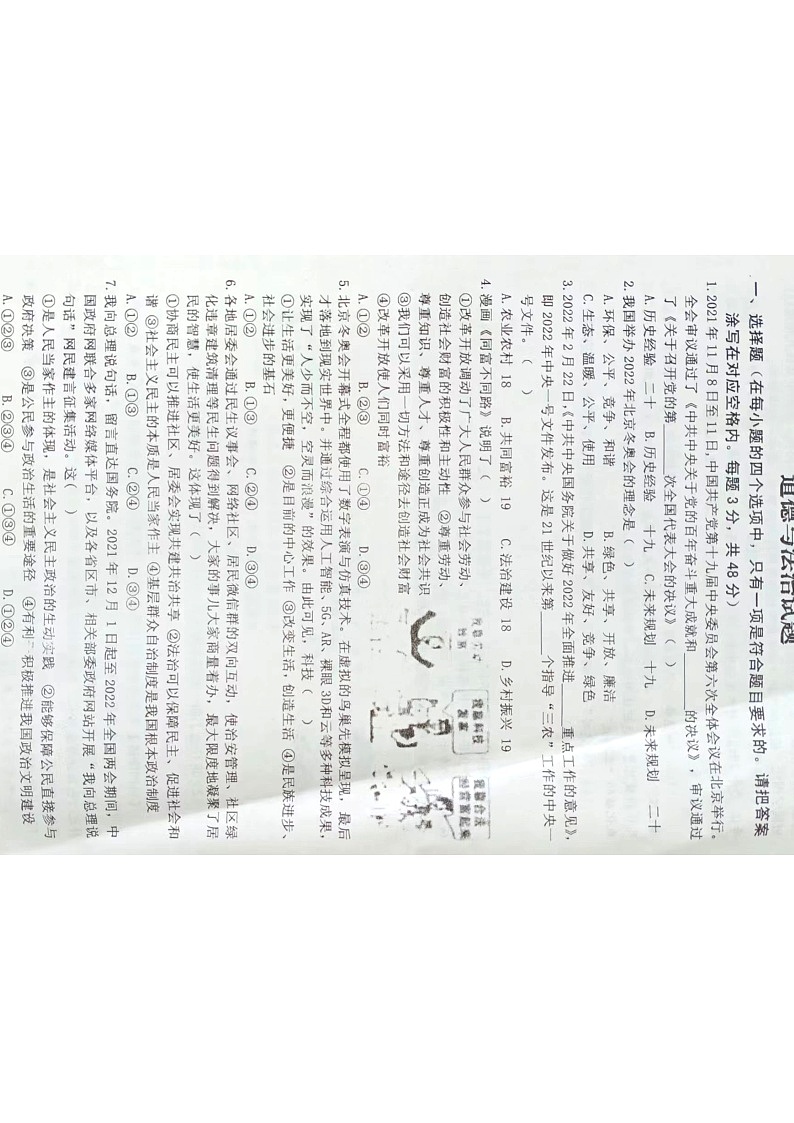 道德与法治试题
一、选择题（在每小题的四个选项中，只有一项是符合题目要求的。请把答案
涂写在对应空格内。每题 3 分，共 48 分）
1. 2021 年 11 月 8 日至 11 日，中国共产党第十九届中央委员会第六次全体会议在北京举行。
全会审议通过了《中共中央关于党的百年奋斗重大成就和______的决议》，审议通过
了《关于召开党的第______次全国代表大会的决议》（ ）
A. 历史经验 二十 B. 历史经验 十九 C. 未来规划 十九 D. 未来规划 二十
2. 我国举办 2022 年北京冬奥会的理念是（ ）
A. 环保、公平、竞争、和谐 B. 绿色、共享、开放、廉洁
C. 生态、温暖、公平、使用 D. 共享、友好、竞争、绿色
3. 2022 年 2 月 22 日，《中共中央国务院关于做好 2022 年全面推进______重点工作的意见》，
即 2022 年中央一号文件发布。这是 21 世纪以来第______个指导“三农”工作的中央一
号文件。（ ）
A. 农业农村 18 B. 共同富裕 19 C. 法治建设 18 D. 乡村振兴 19
4. 漫画《同富不同路》说明了（ ）
①改革开放调动了广大人民群众参与社会劳动、
创造社会财富的积极性和主动性 ②尊重劳动、
尊重知识、尊重人才、尊重创造正成为社会共识
③我们可以采用一切方法和途径去创造社会财富
④改革开放使人们同时富裕
我靠科技
发家
我靠合法
经营富起来
A. ①② B. ②③ C. ①④ D. ③④
5. 北京冬奥会开幕式全程都使用了数字表演与仿真技术。在虚拟的鸟巢先模拟呈现，最后
才落地到现实世界中。并通过综合运用人工智能、5G、AR、裸眼 3D和云等多种科技成果，
实现了“人少而不空，空灵而浪漫”的效果。由此可见，科技（ ）
①让生活更美好，更便捷 ②是目前的中心工作 ③改变生活，创造生活 ④是民族进步、
社会进步的基石
A. ①② B. ①③ C. ②④ D. ③④
6. 各地居委会通过民生议事会、网络社区、居民微信群的双向互动，使治安管理、社区绿
化违章建筑清理等民生问题得到解决，大家的事儿大家商量着办，最大限度地凝聚了居
民的智慧，使生活更美好。这体现了（ ）
①协商民主可以推进社区、居委会实现共建共治共享 ②法治可以保障民主、促进社会和
谐 ③社会主义民主的本质是人民当家作主 ④基层群众自治制度是我国根本政治制度
A. ①② B. ①③ C. ②④ D. ③④
7. 我向总理说句话，留言直达国务院。2021 年 12 月 1 日起至 2022 年全国两会期间，中
国政府网联合多家网络媒体平台，以及各省区市、相关部委政府网站开展“我向总理说
句话”网民建言征集活动。这（ ）
①是人民当家作主的体现，是社会主义民主政治的生动实践 ②能够保障公民直接参与
政府决策 ③是公民参与政治生活的重要途径 ④有利于积极推进我国政治文明建设
A. ①②③ B. ②③④ C. ①③④ D. ①②④